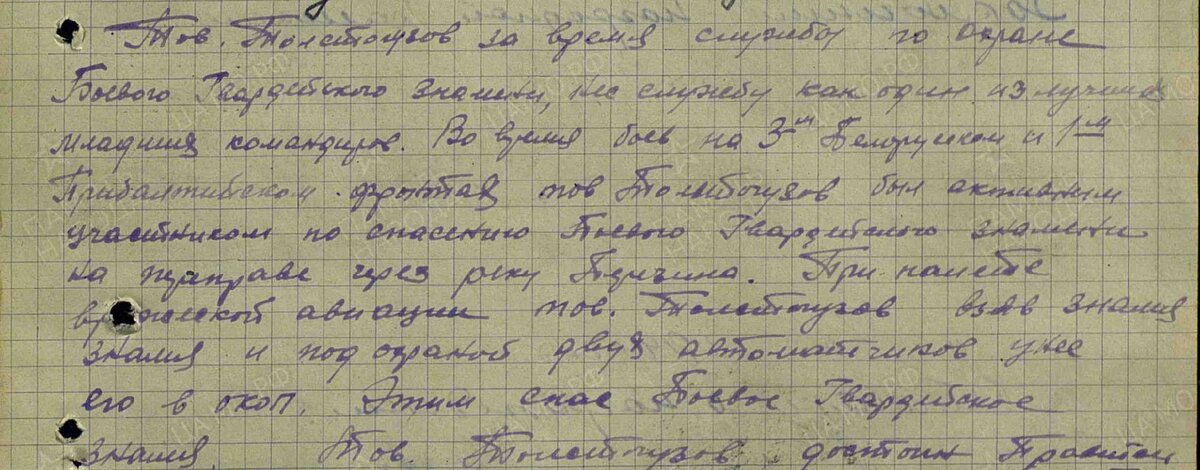 Тов. Толстогузов за время службы по охране
Боевого Гвардейского знамени, нес службу как один из лучших
младших командиров. Во время боев на 3-м Белорусском и 1-м
Прибалтийском фронтах тов Толстогузов был активным
участником по спасению Боевого Гвардейского знамени
на переправе через реку. При налете
вражеской авиации тов. Толстогузов взяв знамя
знамя и под охраной двух автоматчиков унес
его в окоп. Этим спас Боевое Гвардейское
знамя. Тов. Толстогузов достоин